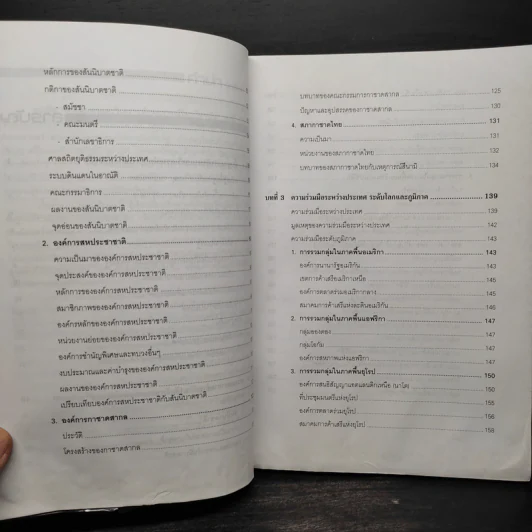 หลักการของสันนิบาตชาติ
กติกาของสันนิบาตชาติ
- สมัชชา
- คณะมนตรี
- สำนักเลขาธิการ
ศาลสถิตยุติธรรมระหว่างประเทศ
ระบบดินแดนในอาณัติ
คณะกรรมาธิการ
ผลงานของสันนิบาตชาติ
จุดอ่อนของสันนิบาตชาติ
2. องค์การสหประชาชาติ
ความเป็นมาขององค์การสหประชาชาติ
จุดประสงค์ขององค์การสหประชาชาติ
หลักการขององค์การสหประชาชาติ
สมาชิกภาพขององค์การสหประชาชาติ
องค์กรหลักขององค์การสหประชาชาติ
หน่วยงานย่อยขององค์การสหประชาชาติ
องค์การชำนัญพิเศษและทบวงอื่นๆ
งบประมาณและค่าบำรุงขององค์การสหประชาชาติ
ผลงานขององค์การสหประชาชาติ
เปรียบเทียบองค์การสหประชาชาติกับสันนิบาตชาติ
3. องค์การกาชาดสากล
ประวัติ
โครงสร้างของกาชาดสากล
บทบาทของคณะกรรมการกาชาดสากล 125
ปัญหาและอุปสรรคของกาชาดสากล 130
4. สภากาชาดไทย 131
ความเป็นมา 131
หน่วยงานของสภากาชาดไทย 132
บทบาทของสภากาชาดไทยกับเหตุการณ์สึนามิ 134
บทที่ 3 ความร่วมมือระหว่างประเทศ ระดับโลกและภูมิภาค 139
ความร่วมมือระหว่างประเทศ 139
มูลเหตุของความร่วมมือระหว่างประเทศ 142
ความร่วมมือระดับภูมิภาค 143
1. การรวมกลุ่มในภาคพื้นอเมริกา 143
องค์การนานารัฐอเมริกัน 143
เขตการค้าเสรีอเมริกาเหนือ 145
องค์การตลาดร่วมอเมริกากลาง 145
สมาคมการค้าเสรีแห่งละตินอเมริกัน 146
2. การรวมกลุ่มในภาคพื้นแอฟริกา 147
กลุ่มอองตอง 147
กลุ่มโอกัม 147
องค์การสหภาพแห่งแอฟริกา 147
3. การรวมกลุ่มในภาคพื้นยุโรป 150
องค์การสนธิสัญญาแอตแลนติกเหนือ (นาโต) 150
ที่ประชุมมนตรีแห่งยุโรป 155
องค์การตลาดร่วมยุโรป 156
สมาคมการค้าเสรีแห่งยุโรป 159